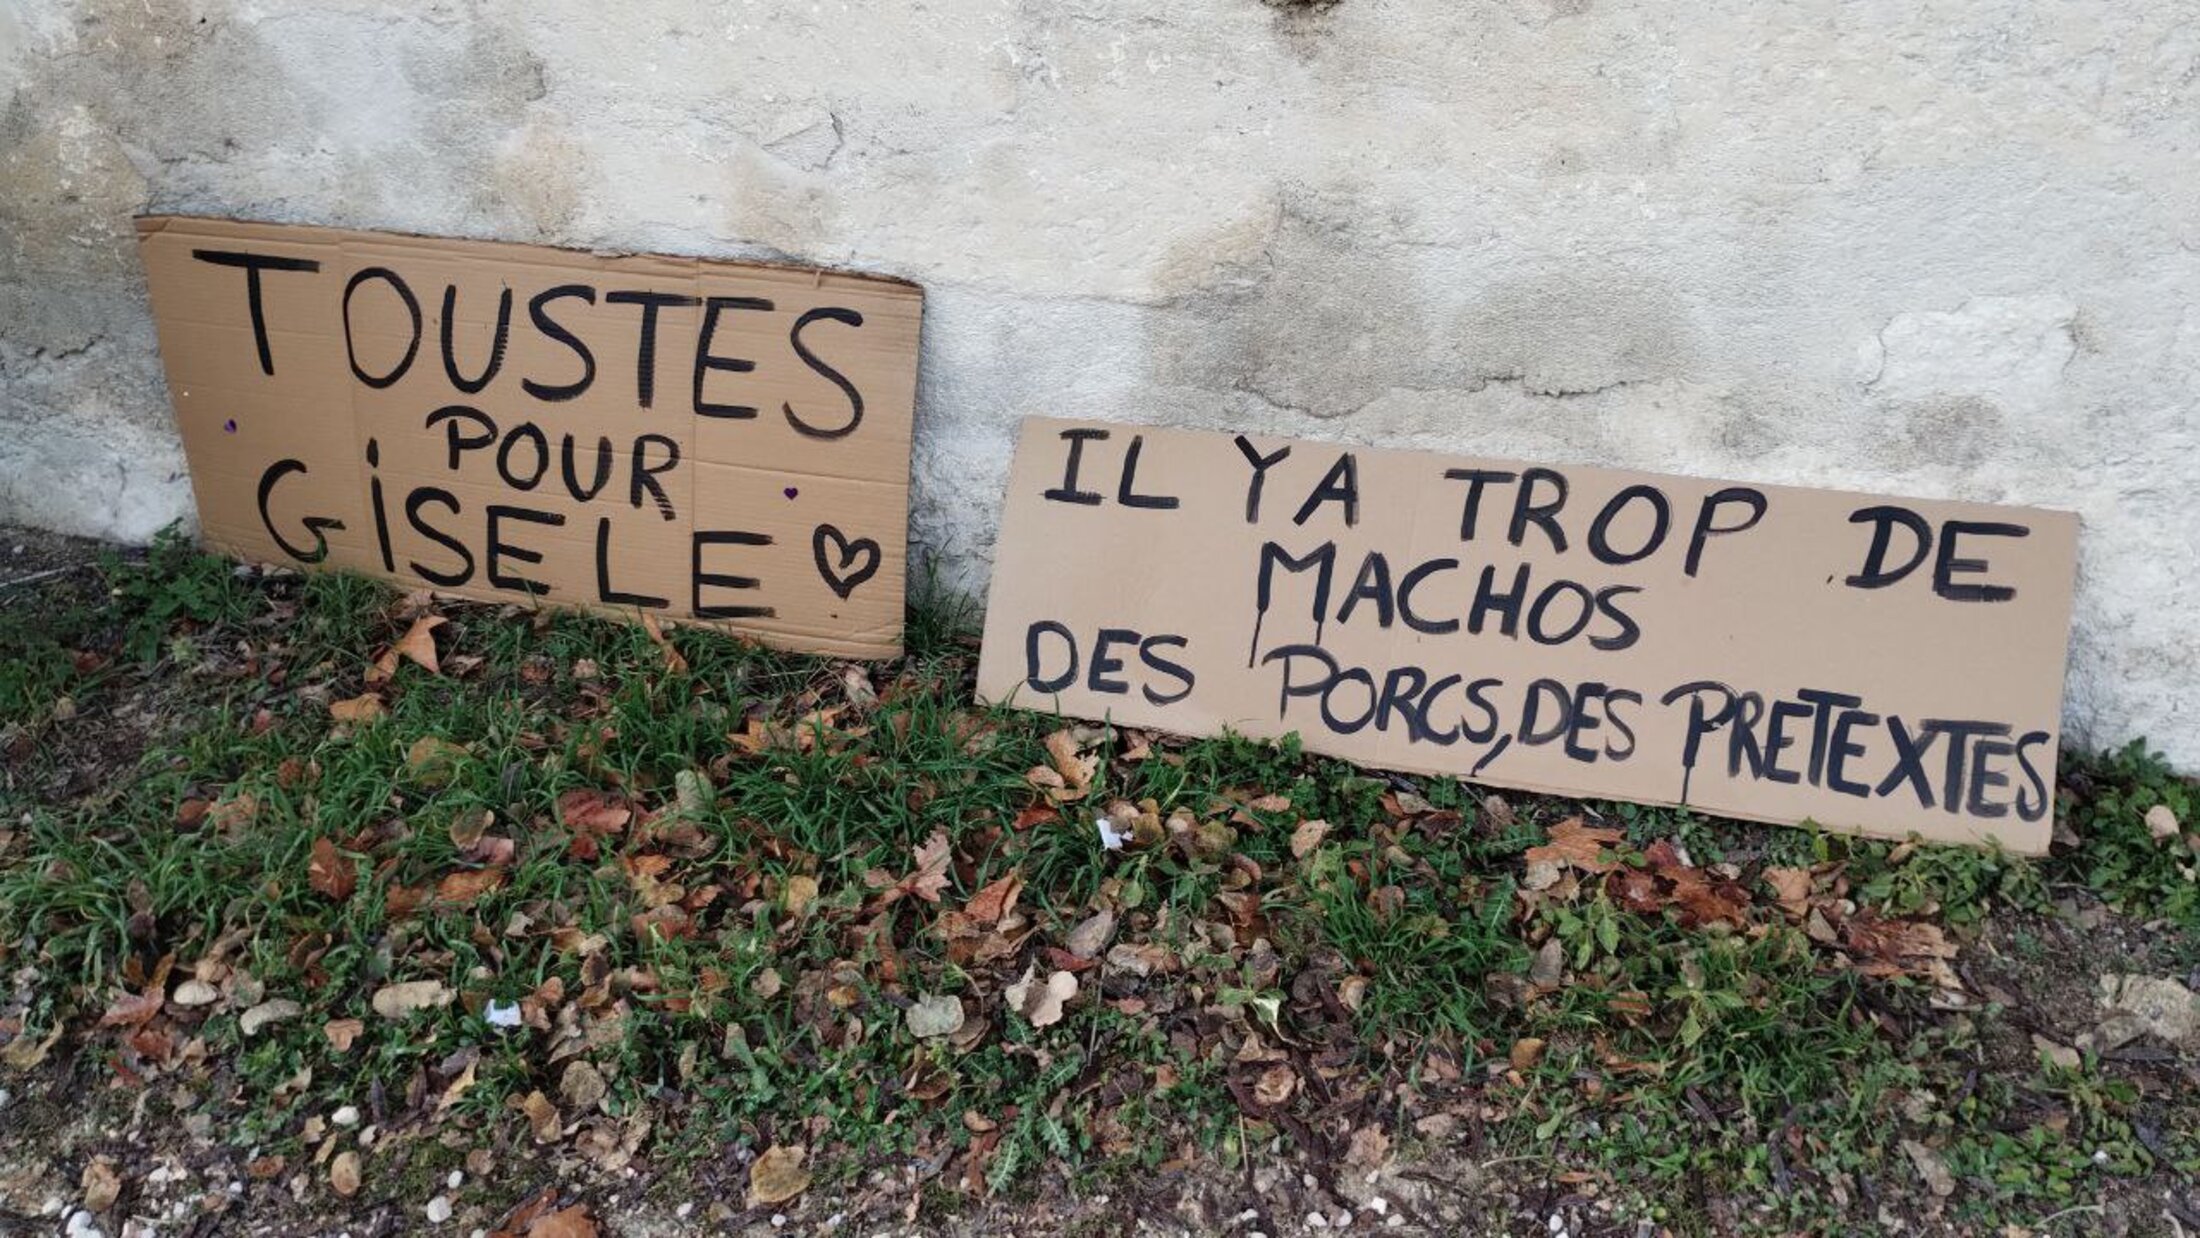 TOUSTES
POUR
GISELE
IL Y A TROP DE
MACHOS
DES PORCS, DES PRETEXTES